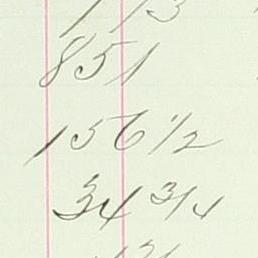 851
156 1/2
34 3/4